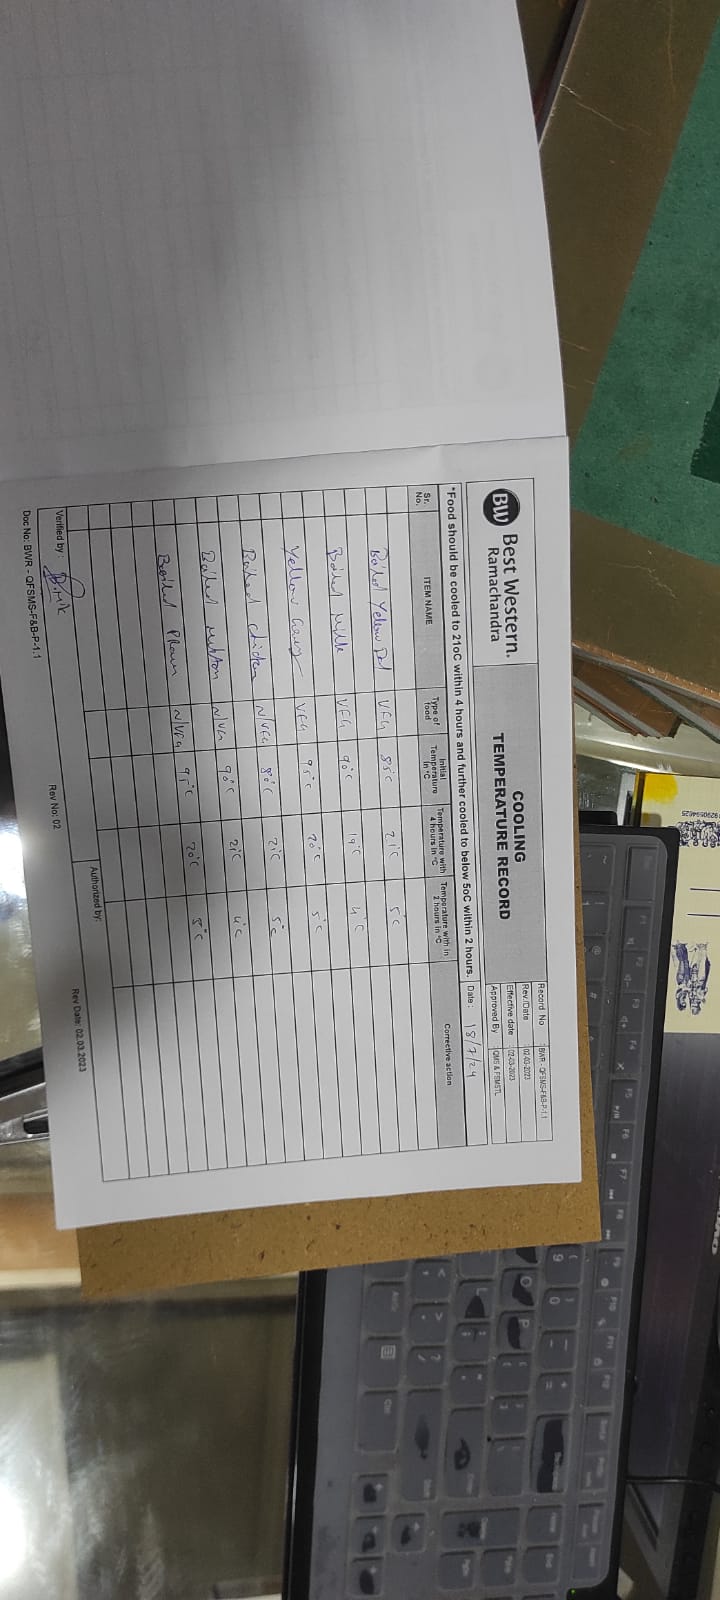 BW Best Western.
Ramachandra
COOLING
TEMPERATURE RECORD
Record No : BWR - QFSMS-F&B-P-1.1
Rev./Date : 02-03-2023
Effective date : 02-03-2023
Approved By : QMS & FSMSTL
*Food should be cooled to 21oC within 4 hours and further cooled to below 5oC within 2 hours. Date : 18/7/24
Sr. No. ITEM NAME Type of food Initial Temperature in °C Temperature with 4 hours in °C Temperature with in 2 hours in °C Corrective action
Boiled Yellow Dal VEG 85°C 21°C 5°C
Boiled Milk VEG 90°C 19°C 4°C
Yellow Gravy VEG 95°C 20°C 5°C
Boiled Chicken N/VEG 80°C 21°C 5°C
Boiled mutton N/VEG 90°C 21°C 4°C
Boiled Prawn N/VEG 95°C 20°C 5°C
Verified by :
Authorized by:
Doc No: BWR - QFSMS-F&B-P-1.1 Rev No: 02 Rev Date: 02.03.2023